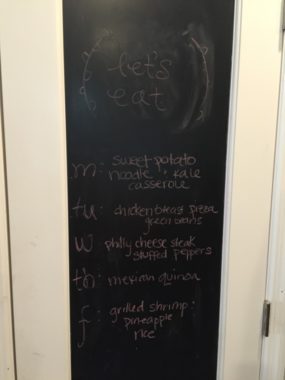 let's
eat
m: sweet potato
noodle + kale
casserole
tu: chicken breast pizza
green beans
w: philly cheese steak
stuffed peppers
th: mexican quinoa
f: grilled shrimp:
pineapple
rice